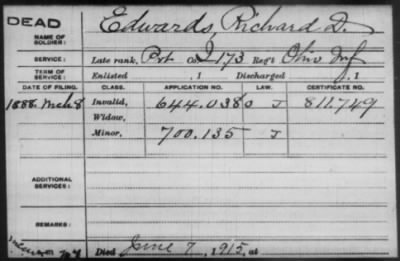 DEAD
NAME OF SOLDIER: Edwards, Richard D.
SERVICE: Late rank, Pvt Co. I 173 Reg't Ohio Inf
TERM OF SERVICE: Enlisted , 1 Discharged , 1
DATE OF FILING. CLASS. APPLICATION NO. LAW. CERTIFICATE NO.
1888 Mch 8 Invalid, 644.038 J 811.749
Widow,
Minor, 700.135 J
ADDITIONAL SERVICES:
REMARKS:
Died June 7, 1915, at